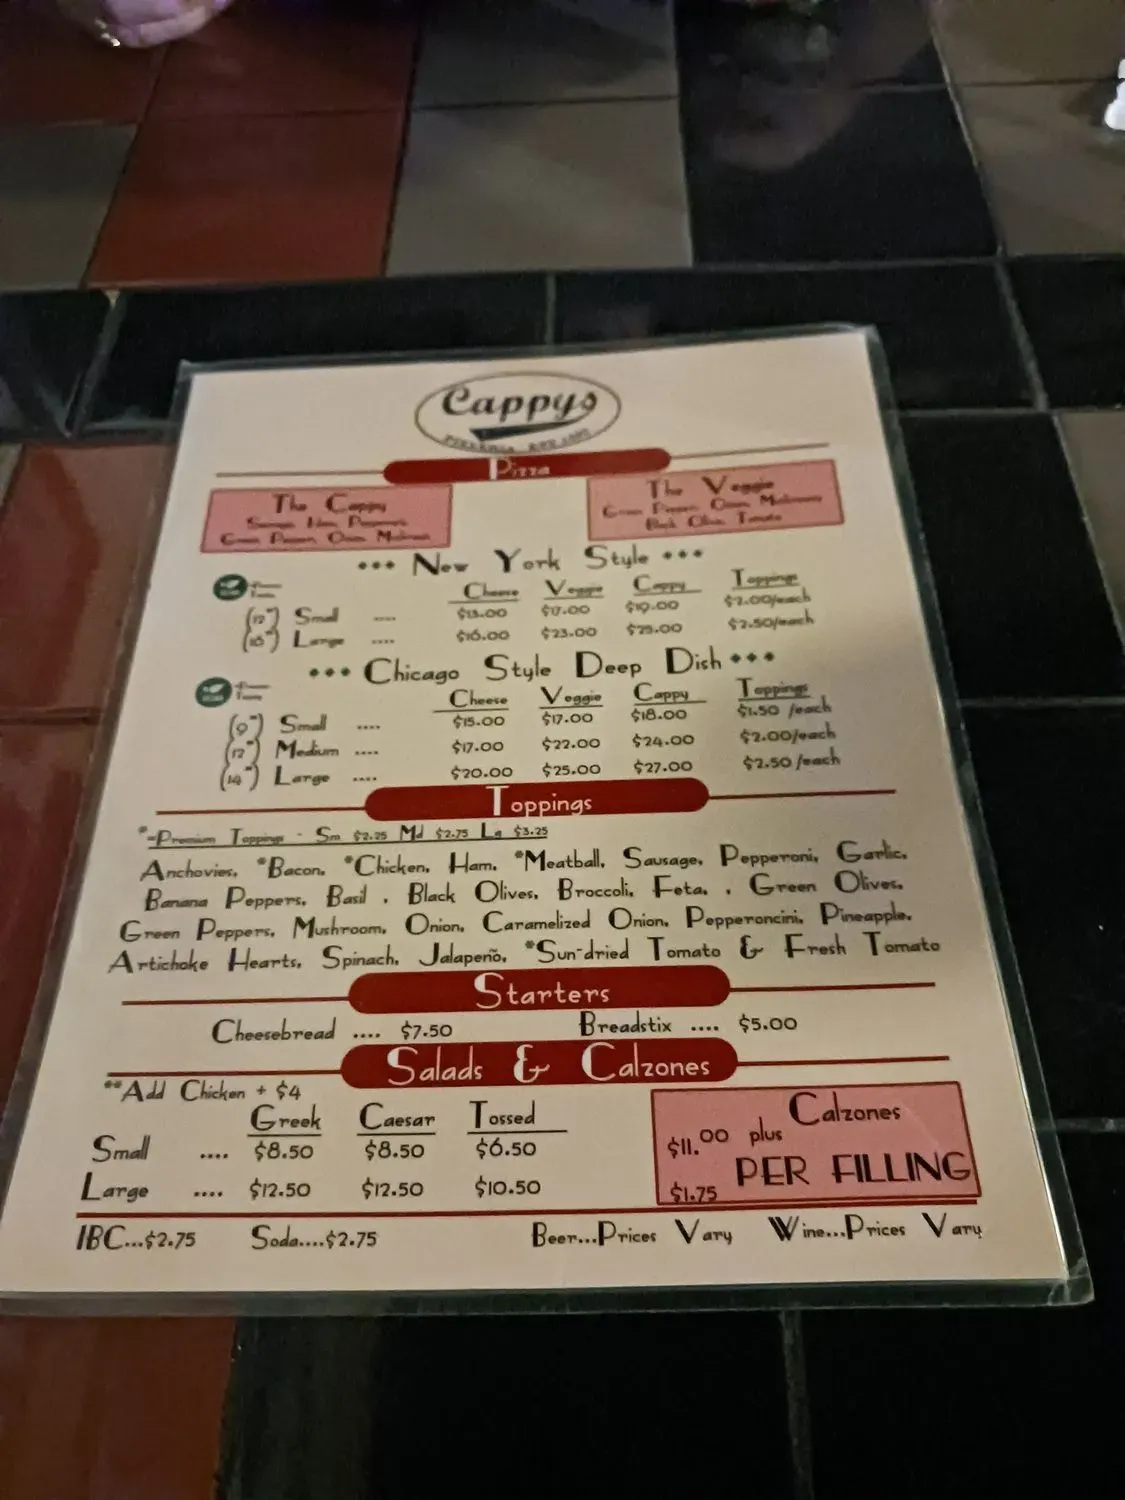 Cappys
Pizza
The Cappy
Green Pepper, Onion, Mushroom
The Veggie
Green Pepper, Onion, Mushrooms
Black Olive, Tomato
New York Style
Cheese Veggie Cappy Toppings
(12") Small .... $13.00 $17.00 $19.00 $2.00/each
(16") Large .... $16.00 $23.00 $25.00 $2.50/each
Chicago Style Deep Dish
Cheese Veggie Cappy Toppings
(9") Small .... $15.00 $17.00 $18.00 $1.50 /each
(12") Medium .... $17.00 $22.00 $24.00 $2.00/each
(14") Large .... $20.00 $25.00 $27.00 $2.50 /each
Toppings
*=Premium Toppings - Sm $2.25 Md $2.75 La $3.25
Anchovies, *Bacon, *Chicken, Ham, *Meatball, Sausage, Pepperoni, Garlic,
Banana Peppers, Basil , Black Olives, Broccoli, Feta, , Green Olives,
Green Peppers, Mushroom, Onion, Caramelized Onion, Pepperoncini, Pineapple,
Artichoke Hearts, Spinach, Jalapeño, *Sun-dried Tomato & Fresh Tomato
Starters
Cheesebread .... $7.50 Breadstix .... $5.00
Salads & Calzones
**Add Chicken + $4
Greek Caesar Tossed
Small .... $8.50 $8.50 $6.50
Large .... $12.50 $12.50 $10.50
Calzones
$11.00 plus
$1.75 PER FILLING
IBC...$2.75 Soda....$2.75 Beer...Prices Vary Wine...Prices Vary